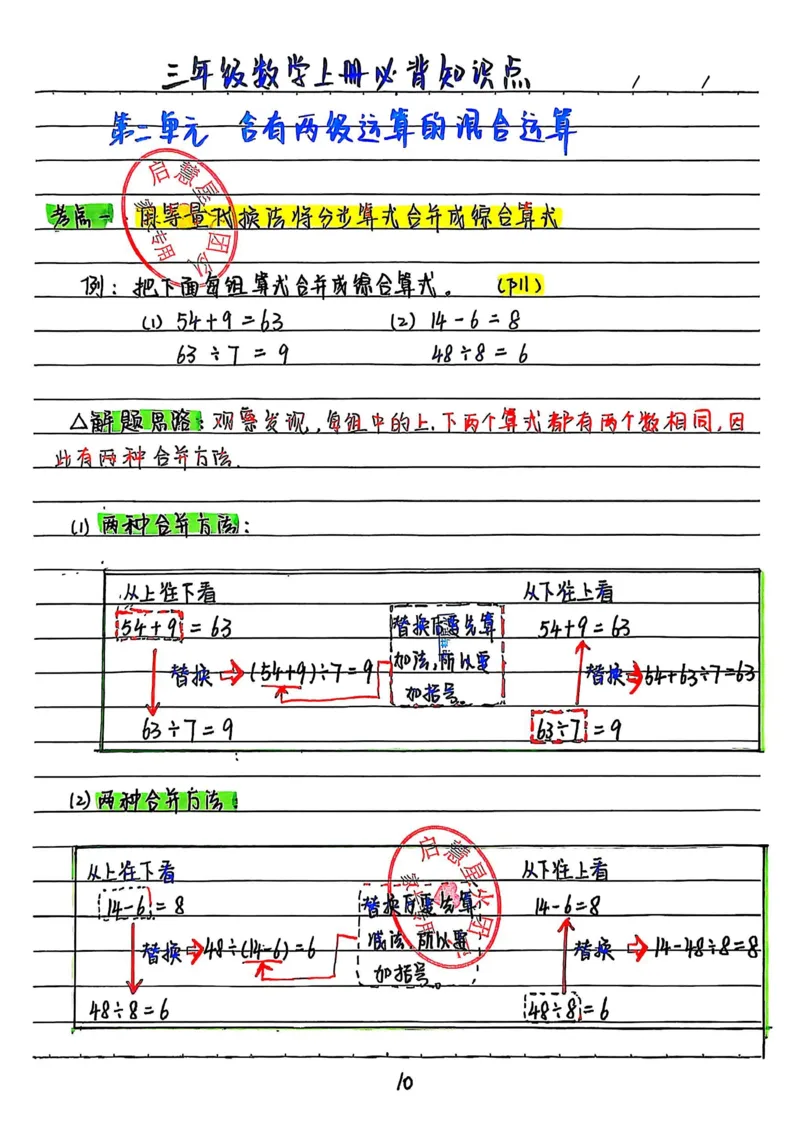 三年级数学上册必背知识点 / /
第二单元 含有两级运算的混合运算
考点一 用等量代换法将分步算式合并成综合算式
例：把下面每组算式合并成综合算式。 (P11)
(1) 54+9=63 (2) 14-6=8
63÷7=9 48÷8=6
△解题思路：观察发现，每组中的上、下两个算式都有两个数相同，因
此有两种合并方法.
(1) 两种合并方法：
从上往下看 从下往上看
54+9=63 替换后要先算 54+9=63
替换 (54+9)÷7=9 加法，所以要 替换 54+63÷7=63
加括号。
63÷7=9 63÷7=9
(2) 两种合并方法：
从上往下看 从下往上看
14-6=8 替换后要先算 14-6=8
替换 48÷(14-6)=6 减法，所以要 替换 14-48÷8=8
加括号。
48÷8=6 48÷8=6
10
启慧星火团队
家长专用